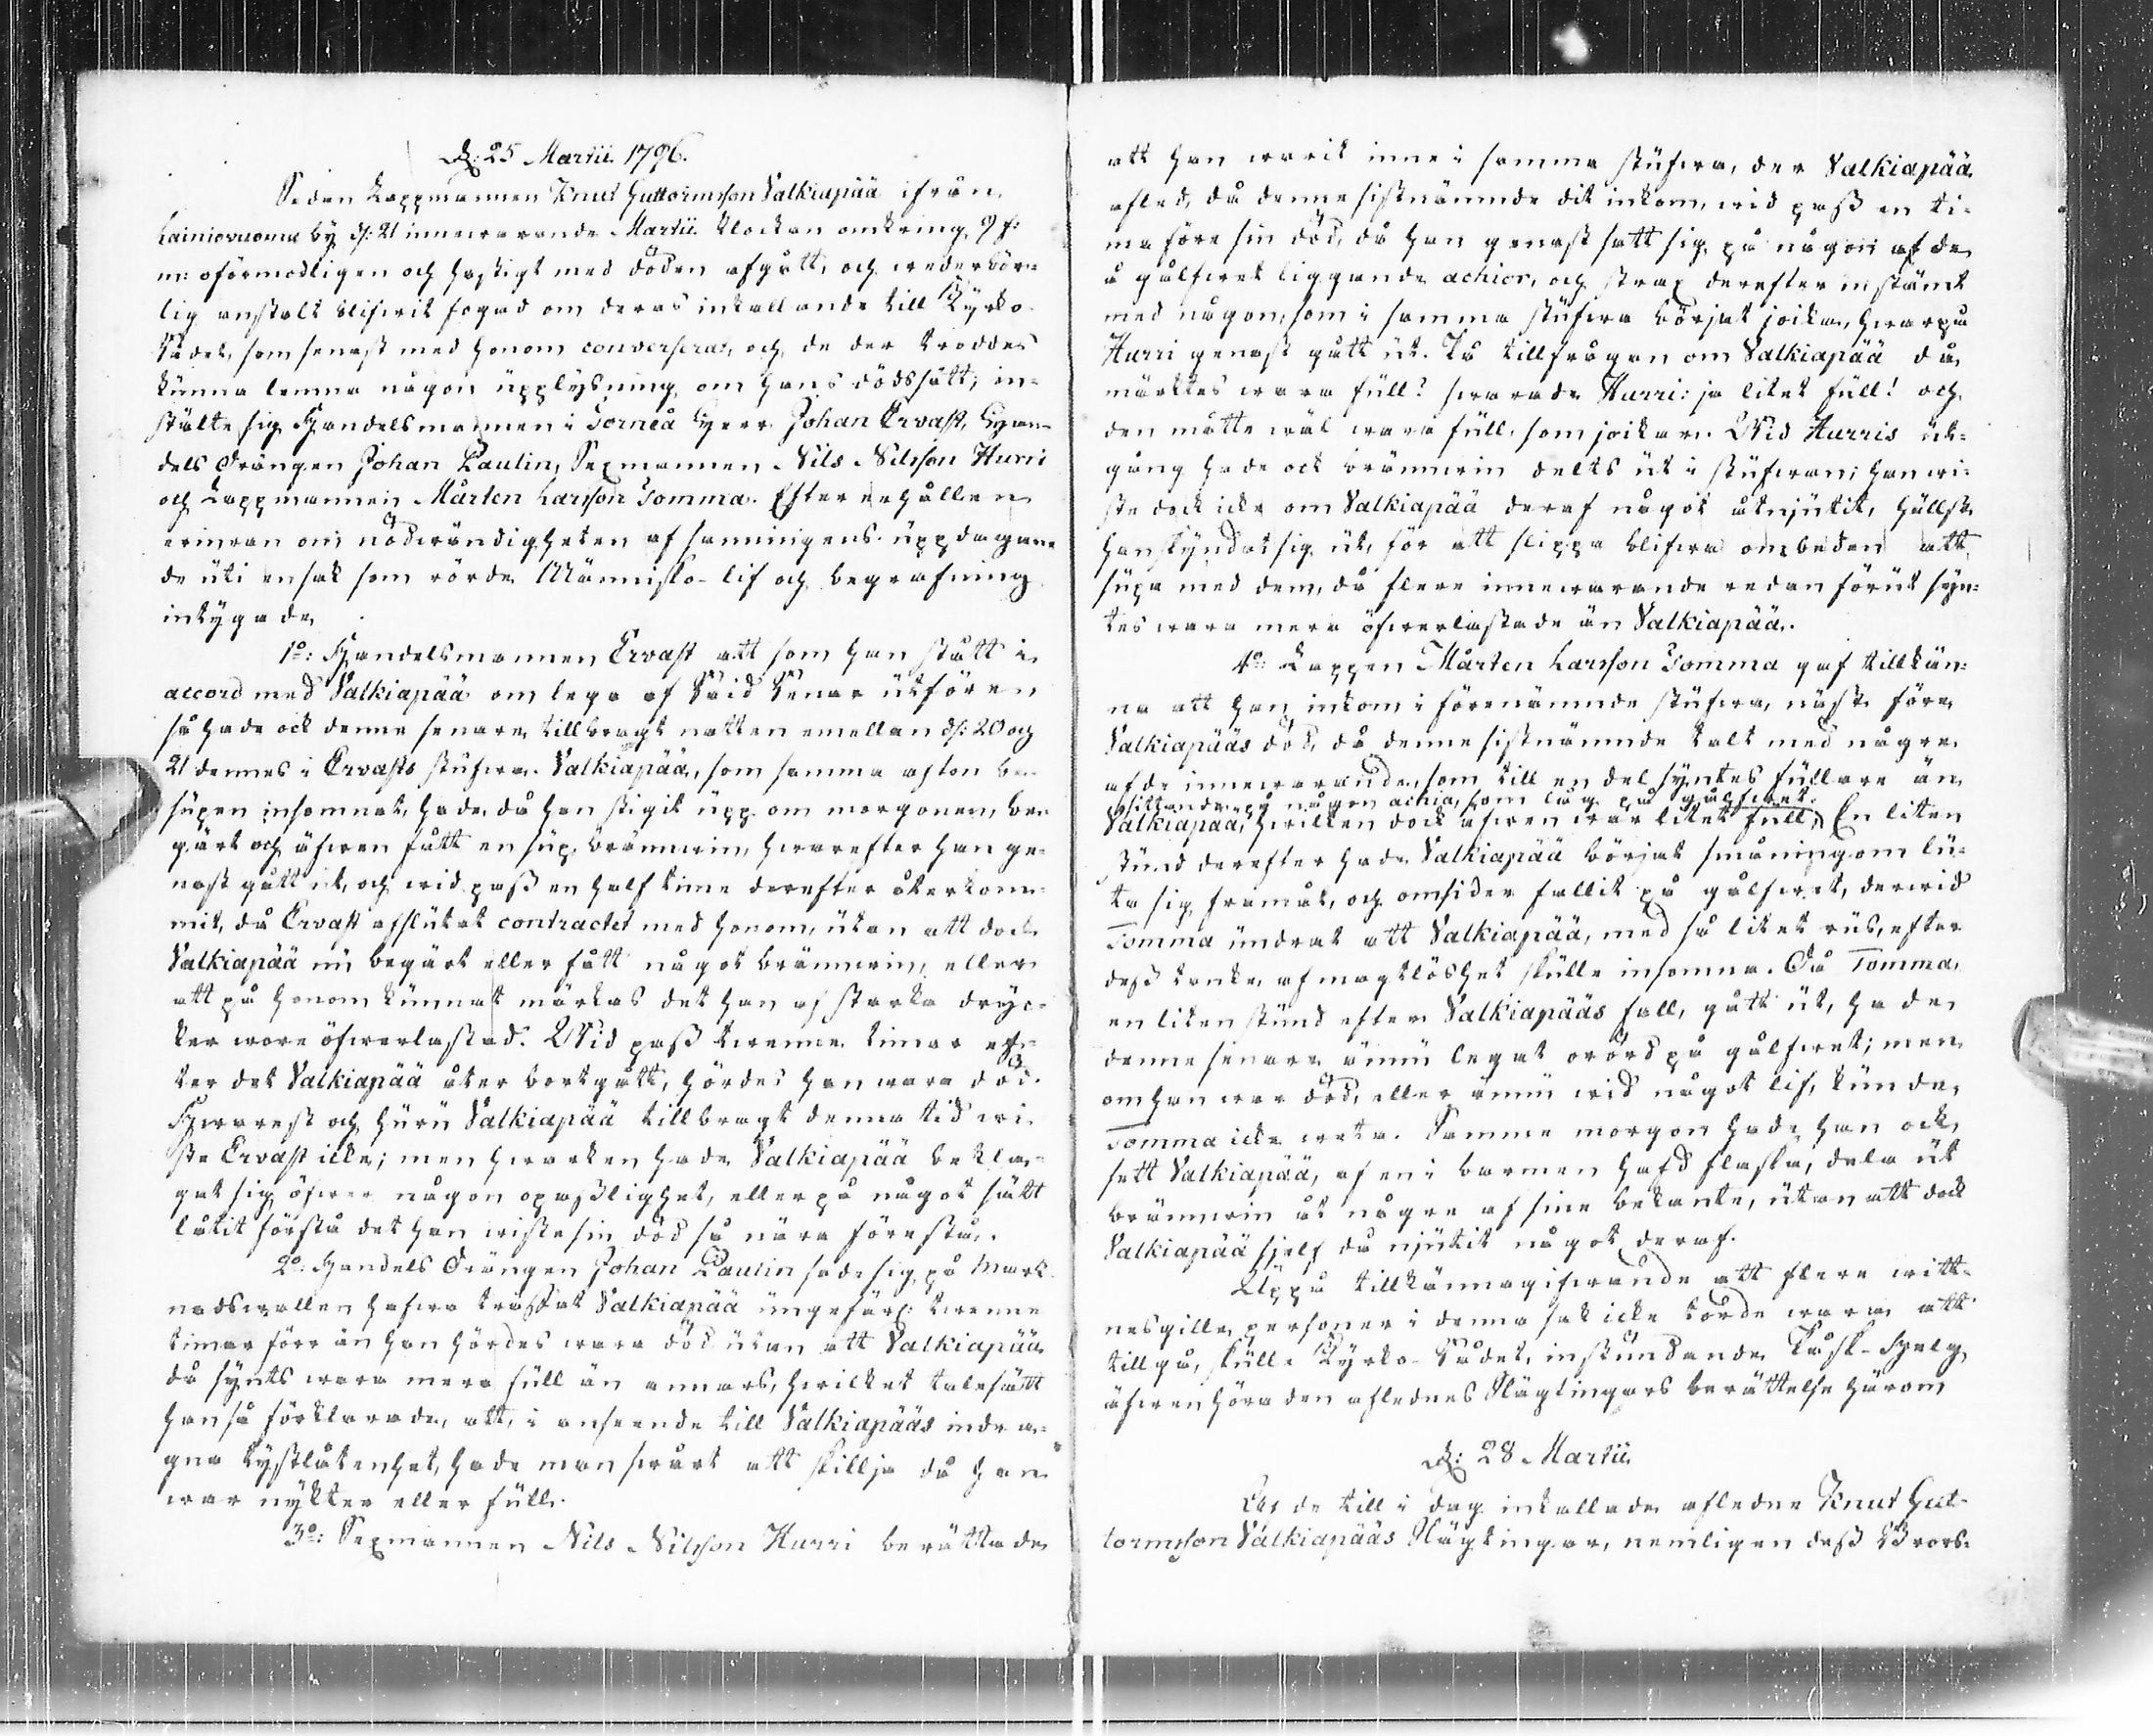 d: 25 Martii 1796.
Sedan Lappmannen Knut Guttormsson Valkiapää ifrån
Lainiovuoma by d: 21 innewarande Martii klockan omkring 9 f:
m: oförmodligen och hastigt med döden afgått, och wederbör-
lig anstalt blifwit fogad om deras inkallande till Kyrko-
Rådet, som senast med honom converserat, och de der troddes
kunna lemna någon upplysning om hans dödssätt; in-
stälte sig Handelsmannen i Torneå Herr Johan Ervast, Han-
dels Drängen Johan Paulin, Sexmannen Nils Nilsson Hurri
och Lappmannen Mårten Larsson Tomma. Efter erhållen
erinran om nödwändigheten af sanningens uppdagan-
de uti en sak som rörde Mennisko-lif och begrafning
intygade
1o: Handelsmannen Ervast att som han stått i
accord med Valkiapää om lega af Renar utföre
så hade ock denne senare tillbragt natten emellan d: 20 och
21 dennes i Ervasts stufwa. Valkiapää, som samma afton be-
supen insomnat, hade, då han stigit upp om morgonen, be-
gärt och äfwen fått en sup brännwin, hwarefter han ge-
nast gått ut, och wid pass en half time derefter återkom-
mit, då Ervast afslutat contractet med honom, utan att dock
Valkiapää nu begärt eller fått något brännwin, eller
att på honom kunnat märkas det han af starka dryc-
ker wore öfwerlastad. Wid pass twenne timar ef-
ter det Valkiapää åter bortgått, hördes han wara död.
Hwarest och huru Valkiapää tillbragt denna tid wi-
ste Ervast icke; men hwarken hade Valkiapää bekla-
gat sig öfwer någon opasslighet, eller på något sätt
låtit förstå det han wiste sin död så nära förestå.
2o: Handels Drängen Johan Paulin sade sig på Mark-
nadswallen hafwa träffat Valkiapää ungefär twenne
timar förr än han hördes wara död utan att Valkiapää
då synts wara mera full än annars, hwilket talesätt
han så förklarade, att, i anseende till Valkiapääs indra-
gna tystlåtenhet, hade man swårt att skillja då han
war nykter eller full.
3o: Sexmannen Nils Nilsson Hurri berättade
att han warit inne i samma stufwa, der Valkiapää
afled, då denne sistnämnde dit inkom, wid pass en ti-
ma före sin död, då han genast satt sig på någon af de
å gålfwet liggande achior, och strax derefter instämt
med någon, som i samma stufwa börjat joika, hwarpå
Hurri genast gått ut. På tillfrågan om Valkiapää då
märktes wara full? swarade Hurri: ja litet full! och
den måtte wäl wara full, som joikar. Wid Hurris ut-
gång hade ock brännwin delts ut i stufwan; han wi-
ste dock icke om Valkiapää deraf något åtnjutit, hällst
han skyndat sig ut, för att slippa blifwa ombeden att
supa med dem, då flere innewarande redan förut syn-
tes wara mera öfwerlastade än Valkiapää.
4o: Lappen Mårten Larsson Tomma gaf tillkän-
na att han inkom i förenämnde stufwa, näst före
Valkiapääs död, då denne sistnämnde talt med någre
af de innewarande, som till en del syntes fullare än
sittande på någon achia, som låg på gålfwet.
Valkiapää, hwilken dock äfwen war litet full. En liten
stund derefter hade Valkiapää börjat småningom lu-
ta sig framåt, och omsider fallit på gålfwet, derwid
Tomma undrat att Valkiapää, med så litet rus, efter
dess tanke, af magtlöshet skulle insomna. Då Tomma,
en liten stund efter Valkiapääs fall, gått ut, hade
denne senare ännu legat orörd på gålfwet; men
om han war död, eller ännu wid något lif, kunde
Tomma icke weta. Samme morgon hade han ock
sett Valkiapää, af en i barmen hafd flaska, dela ut
brännwin åt någre af sine bekante, utan att dock
Valkiapää sjelf då njutit något deraf.
Uppå tillkännagifwande att flere witt-
nesgille personer i denna sak icke torde wara att
tillgå, skulle Kyrko-Rådet, instundande Påsk-Helg
äfwen höra den aflednes Slägtingars berättelse härom
d: 28 Martii
Lät de till i dag inkallade aflednе Knut Gut-
tormsson Valkiapääs Slägtingar, nemligen dess Brors-